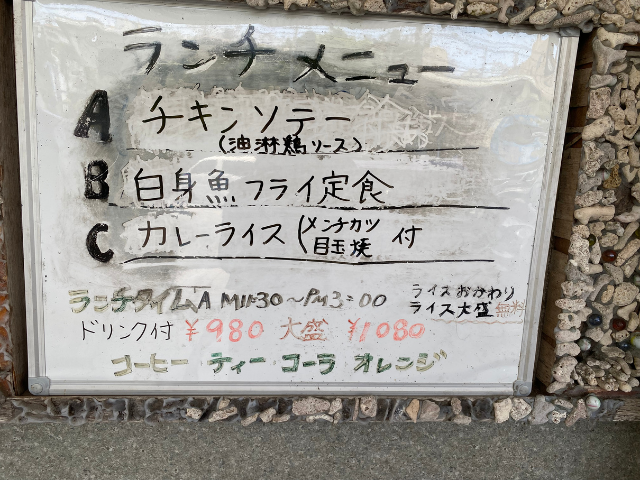 ランチメニュー
A チキンソテー
(油淋鶏ソース)
B 白身魚フライ定食
C カレーライス(メンチカツ 目玉焼 付
ランチタイムAM11:30〜PM3:00
ライスおかわり
ライス大盛無料
ドリンク付 ¥980 大盛 ¥1080
コーヒー ティー コーラ オレンジ